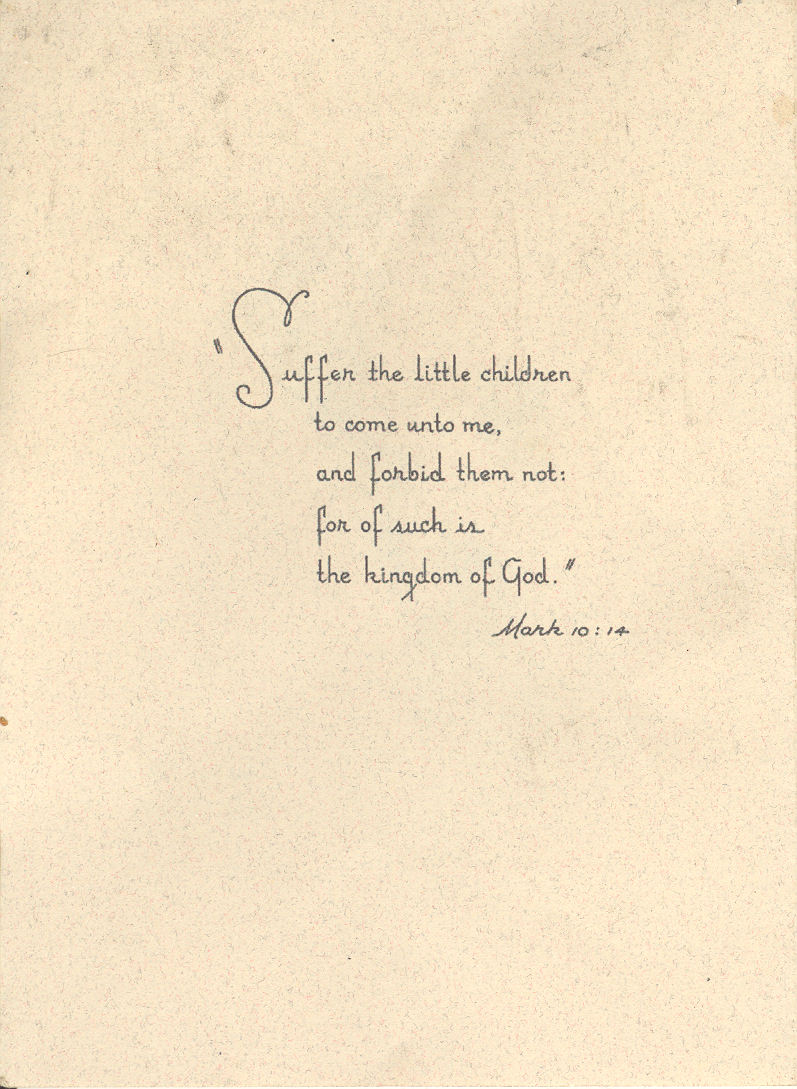 "Suffer the little children
to come unto me,
and forbid them not:
for of such is
the kingdom of God."
Mark 10:14